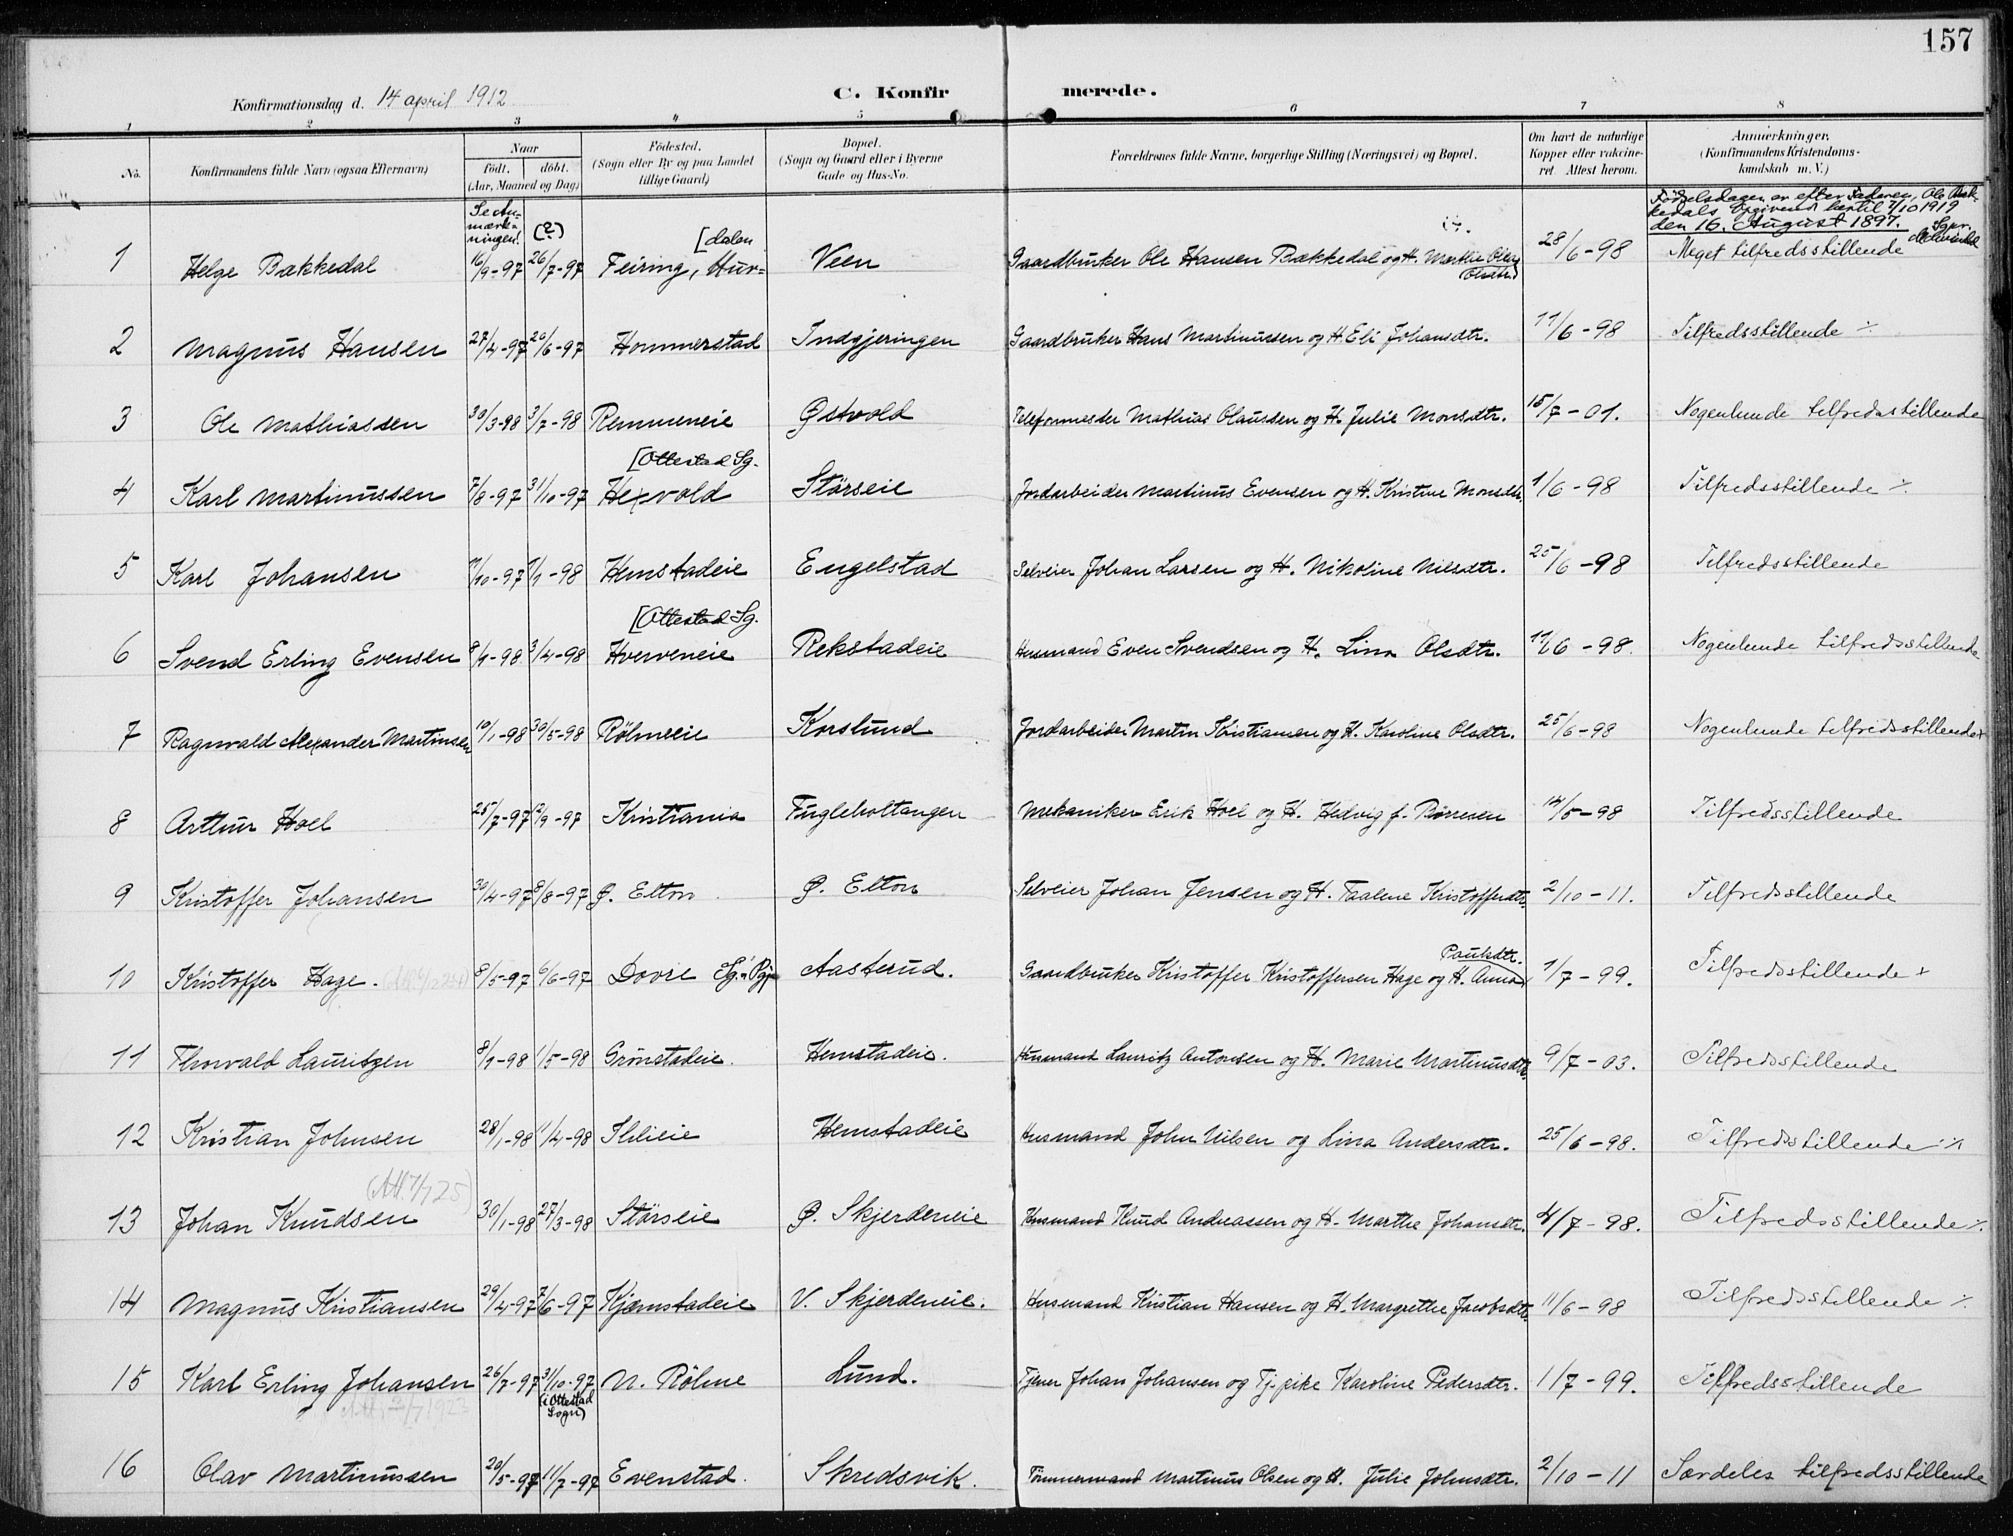 157
Konfirmationsdag d. 14 april 1912
C. Konfirmerede.
1 2 3 4 5 6 7 8
No. Konfirmandens fulde Navn (ogsaa Efternavn) Naar født. døbt. (Aar, Maaned og Dag) Fødested. (Sogn eller By og paa Landet tillige Gaard) Bopæl. (Sogn og Gaard eller i Byerne Gade og Hus-No. Forældrenes fulde Navne, borgerlige Stilling (Næringsvei) og Bopæl. Om havt de naturlige Kopper eller vaccineret. Attest herom. Anmærkninger. (Konfirmandens Kristendomskundskab m. V.)
Se Anmærkningen! (?) Fødselsdagen er efter Faderen, Ole Bækkedals Opgivende hertil 7/10 1919 den 16. August 1897. Sgpr.
1 Helge Bækkedal 16/9-97 26/7-97 Feiring, Hur=[dalen Veen Gaardbruker Ole Hansen Bækkedal og H. Marthe Olsdtr. 28/6-98 Meget tilfredsstillende
2 Magnus Hansen 27/4-97 20/6-97 Hommerstad Indgjeringen Gaardbruker Hans Martinussen og H. Eli Johansdtr. 11/6-98 Tilfredsstillende %
3 Ole Mathiassen 30/3-98 3/7-98 Remmeneie Østvold Telefonmester Mathias Olaussen og H. Julie Monsdtr. 15/7-01. Nogenlunde tilfredsstillende
4 Karl Martinussen 7/8-97 31/10-97 Hexvold [Ottestad Sg. Störseie Jordarbeider Martinus Evensen og H. Kristine Monsdtr. 1/6-98 Tilfredsstillende %
5 Karl Johansen 11/10-97 1/1-98 Hemstadeie Engelstad Selveier Johan Larsen og H. Nikoline Nilsdtr. 25/6-98 Tilfredsstillende
6 Svend Erling Evensen 9/1-98 3/4-98 Hverveneie [Ottestad Sg. Rekstadeie Husmand Even Svendsen og H. Lina Olsdtr. 11/6-98. Nogenlunde tilfredsstillende
7 Ragnvald Alexander Martinsen 10/1-98 30/5-98 Röhneeie Korslund Jordarbeider Martin Kristiansen og H. Karoline Olsdtr. 25/6-98 Nogenlunde tilfredsstillende+
8 Arthur Hoel 25/7-97 12/9-97 Kristiania Fugleholtangen Mekaniker Erik Hoel og H. Hedvig f. Börresen 14/5-98 Tilfredsstillende
9 Kristoffer Johansen 30/4-97 8/8-97 Ø. Elton Ø. Elton Selveier Johan Jensen og H. Taalene Kristoffersdtr. 2/10-11. Tilfredsstillende
10 Kristoffer Hage. 8/5-97 6/6-97 Dovre Sg. i Pgj. Aasterud. Gaardbruker Kristoffer Kristoffersen Hage og H. Anna Paulsdtr. 1/7-99. Tilfredsstillende +
11 Thorvald Lauritzen 8/1-98 1/5-98 Grönstadeie. Hemstadeie. Husmand Lauritz Antonsen og H. Marie Martinusdtr. 9/7-03. Tilfredsstillende
12 Kristian Johnsen 28/1-98 11/4-98 Ihlieie Hemstadeie Husmand John Nilsen og Lina Andersdtr. 25/6-98. Tilfredsstillende %
(Att. 7/7 25)
13 Johan Knudsen 30/1-98 27/3-98 Störseie Ø. Skjerdeneie Husmand Knud Andreassen og H. Marthe Johansdtr. 4/7-98. Tilfredsstillende %
14 Magnus Kristiansen 29/4-97 7/6-97 Kjæmstadeie V. Skjerdeneie. Husmand Kristian Hansen og H. Margrethe Jacobsdtr. 11/6-98 Tilfredsstillende %
15 Karl Erling Johansen 26/7-97 31/10-97 (i Ottestad Sogn) N. Röhne Lund. Tjener Johan Johansen og Tj. pike Karoline Pedersdtr. 11/7-99. Tilfredsstillende
16 Olav Martinussen 20/5-97 11/7-97 Evenstad. Skredsvik. Tømmermand Martinus Olsen og H. Julie Johnsdtr. 2/10-11 Særdeles tilfredsstillende